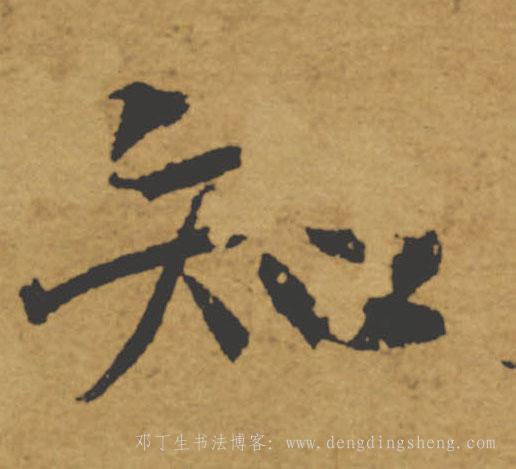 知
邓丁生书法博客: www.dengdingsheng.com